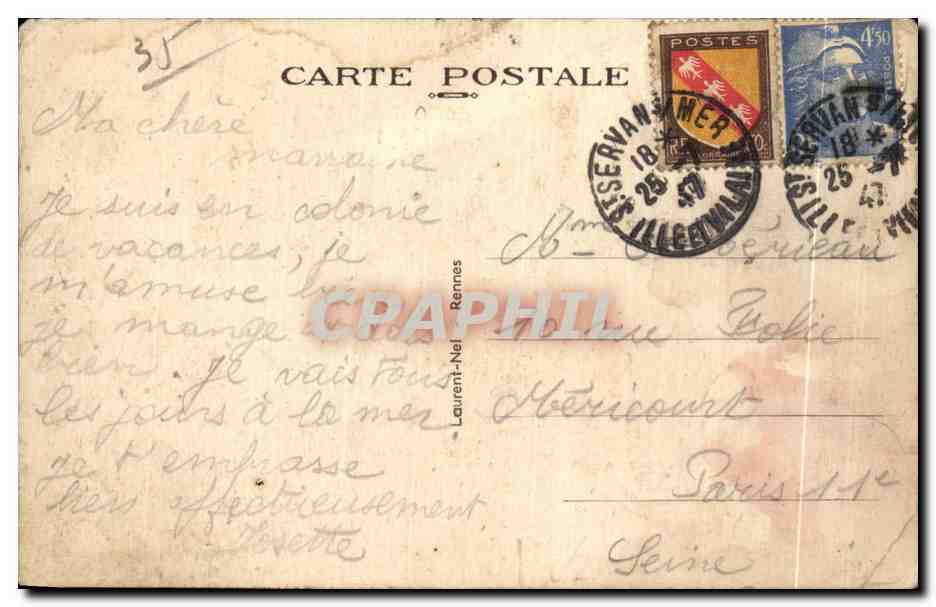 35
CARTE POSTALE
POSTES
4f50
ST SERVAN S/MER
18 *
25 -7
47
ILLE ET VILAINE
ST SERVAN S/MER
18 *
25 -7
47
Ma chère
marraine
Je suis en colonie
de vacances, je
m'amuse
je mange
bien. Je vais tous
les jours à la mer
Je t'embrasse
bien affectueusement
Josette
Laurent-Nel Rennes
Mme
10 rue Folie
Méricourt
Paris 11e
Seine
CPAPHIL